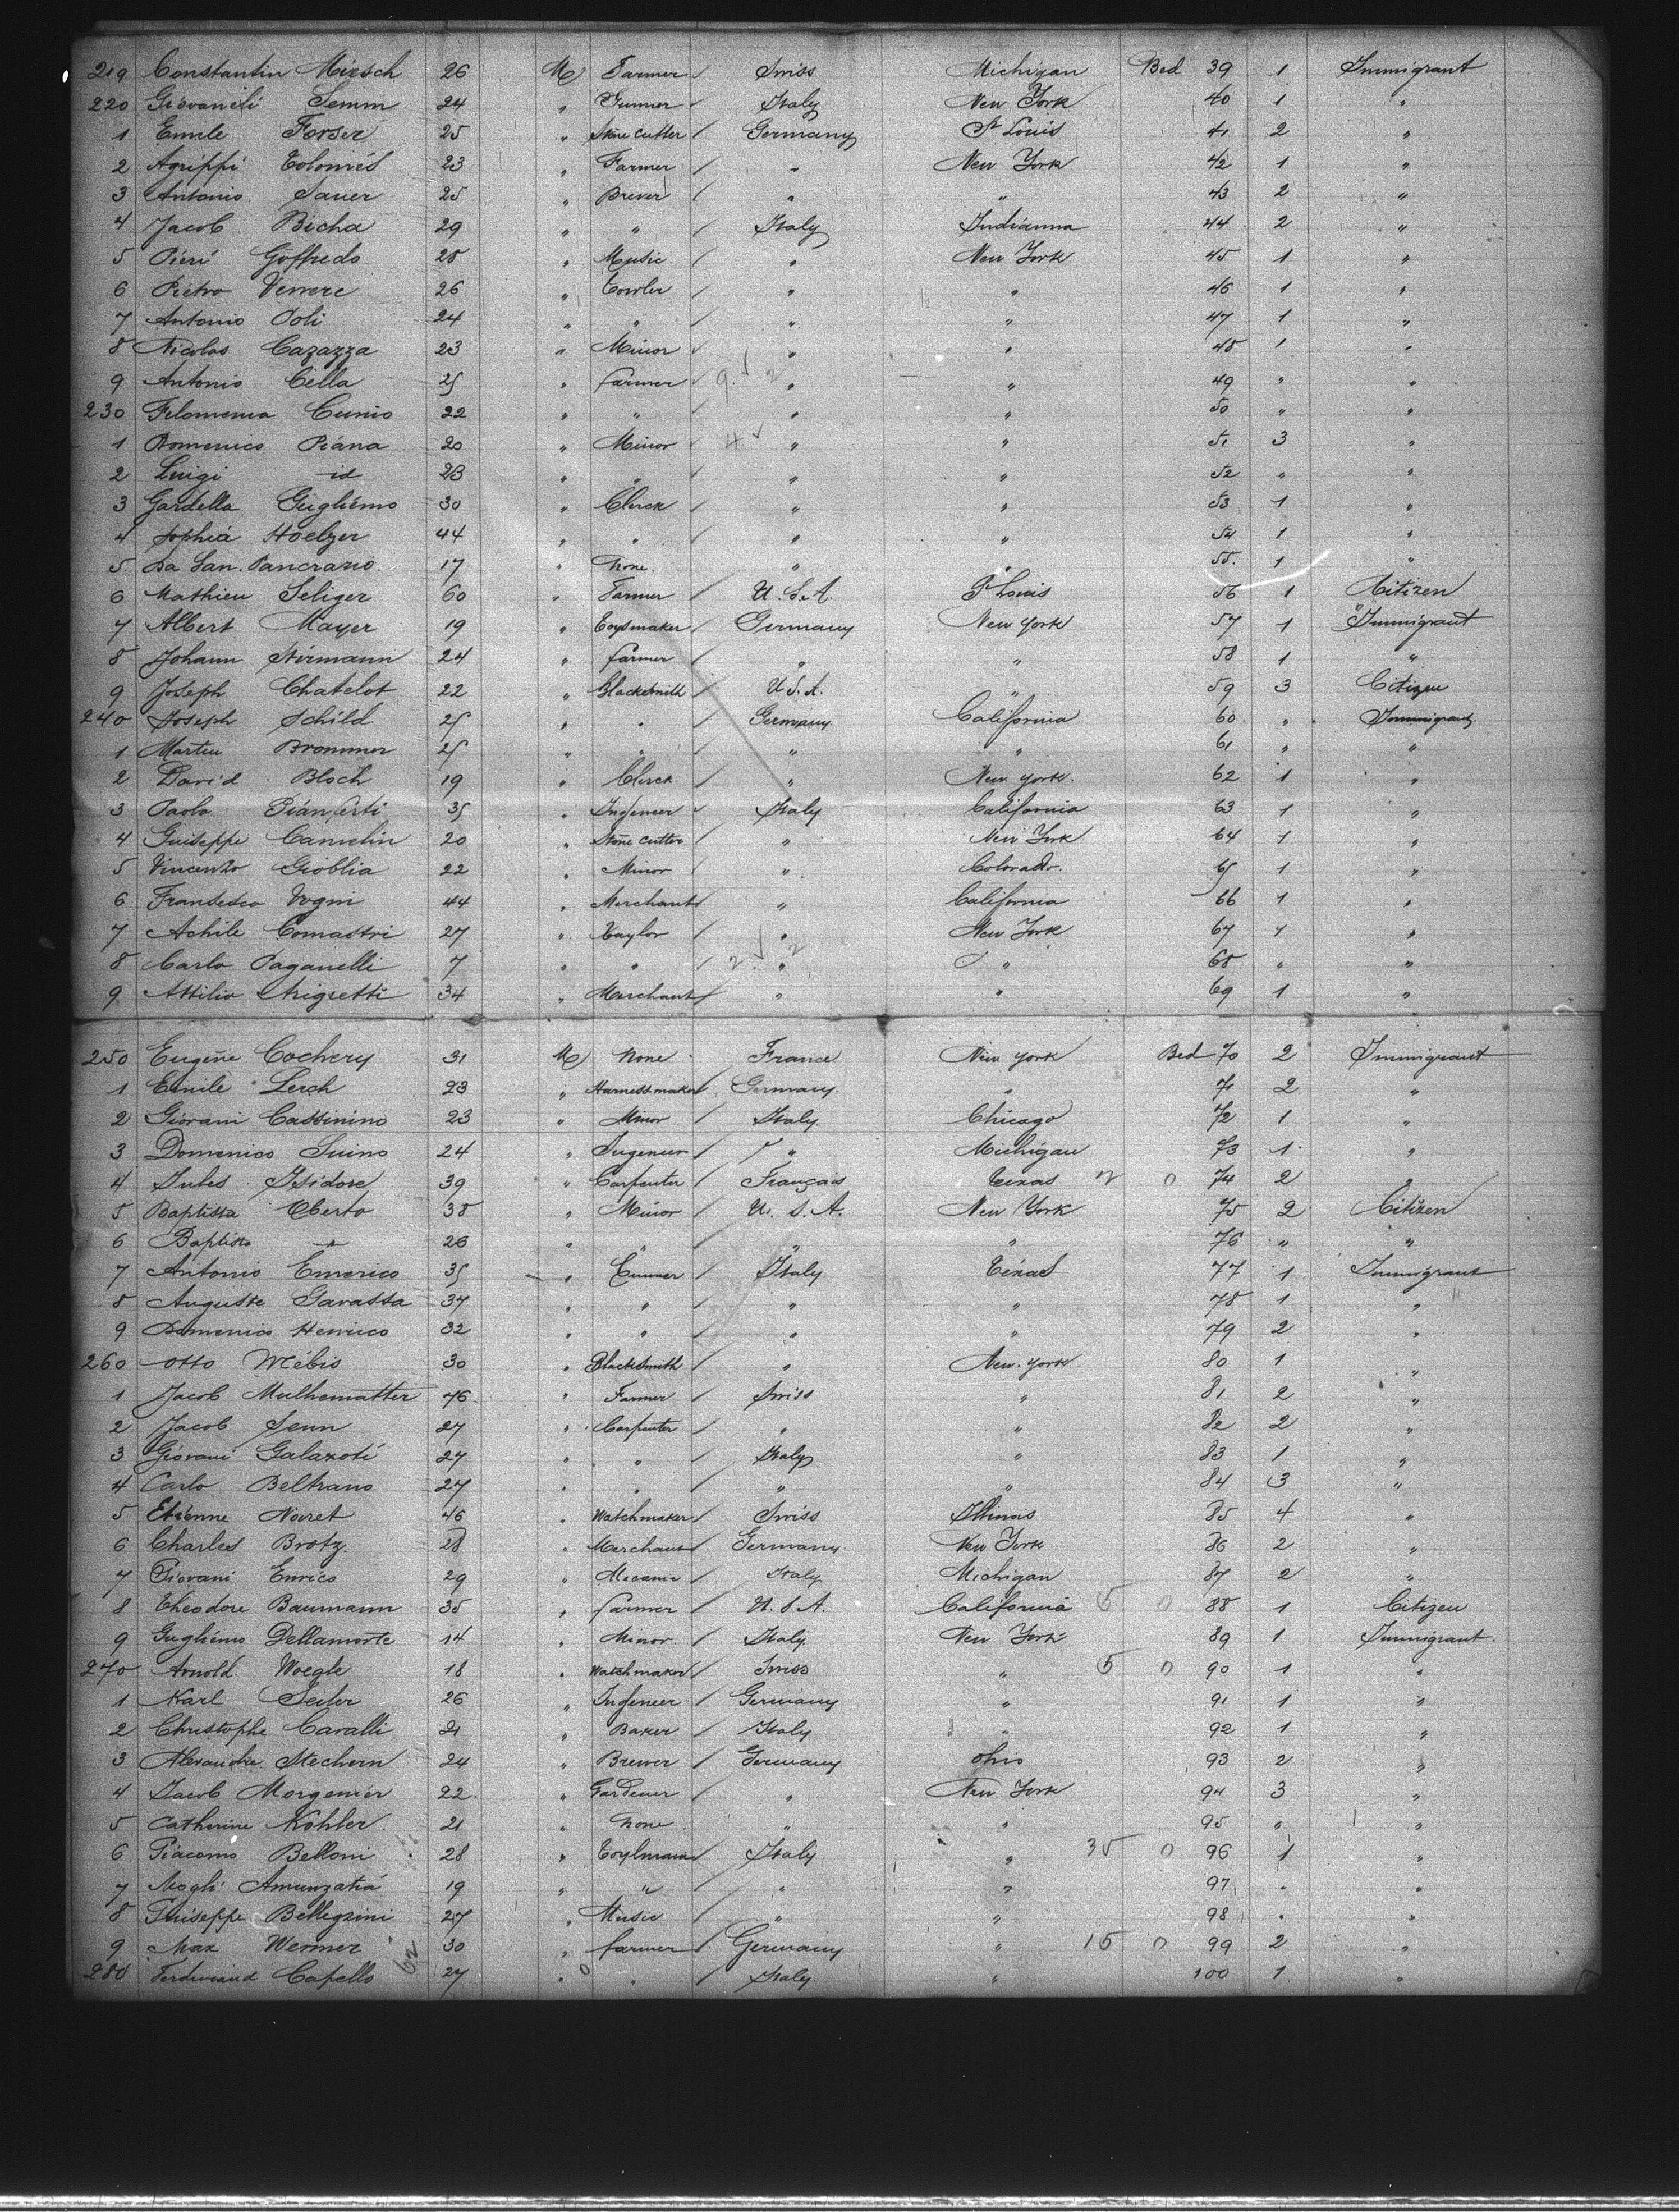 219 Constantin Miesch 26 M Farmer Swiss Michigan Bed 39 1 Immigrant
220 Giovanili Semm 24 " Italy New York 40 1 "
1 Emile Forser 25 " Stone cutter Germany St Louis 41 2 "
2 Agrippi 23 " Farmer " New York 42 1 "
3 Antonio Sauer 25 " Brewer " " 43 2 "
4 Jacob Bicha 29 " " Italy Indianna 44 2 "
5 Pieri Goffredo 28 " Music " New York 45 1 "
6 Pietro 26 " " " 46 1 "
7 Antonio Poli 24 " " " " 47 1 "
8 Nicolas Cazazza 23 " Minor " " 48 1 "
9 Antonio Cella 25 " farmer " " 49 " "
230 Filomena Cunio 22 " " " " 50 " "
1 Domenico Piána 20 " Minor 4 " " 51 3 "
2 Luigi id 23 " " " " 52 " "
3 Gardella Gugliémo 30 " Clerck " " 53 1 "
4 Sophia Hoelzer 44 " " " " 54 1 "
5 Da San. Pancrazio. 17 " None " " 55. 1 "
6 Mathieu Seliger 60 " Farmer U.S.A. St Louis 56 1 Citizen
7 Albert Mayer 19 " Germany New York 57 1 Immigrant
8 Johann Stirmann 24 " farmer " " 58 1 "
9 Joseph Chatelot 22 " Blacksmith U.S.A. " 59 3 Citizen
240 Joseph Schild 25 " " Germany California 60 " Immigrant
1 Martin Brommer 25 " " " " 61 " "
2 David Bloch 19 " Clerck " New york. 62 1 "
3 Paolo 35 " Ingeneer Italy California 63 1 "
4 Guiseppe Camelin 20 " Stone cutter " New York 64 1 "
5 Vincenzo Gioblia 22 " Minor " Colorado. 65 1 "
6 Fransesco Vogni 44 " Merchant " California 66 1 "
7 Achile Comastri 27 " Taylor " New York 67 1 "
8 Carlo Paganelli 7 " " 2 " " 68 " "
9 Attilio Arigretti 34 " Merchant " " 69 1 "
250 Eugéne Cochery 31 M None France New york Bed 70 2 Immigrant
1 Emile Lerch 23 " Harnessmaker Germany " 71 2 "
2 Giovani Cassinino 23 " Minor Italy Chicago 72 1 "
3 Domenico Suino 24 " Ingeneer " Michigan 73 1 "
4 Jules Isidore 39 " Carpenter Français Texas 0 74 2 "
5 Baptista Oberto 38 " Minor U.S.A. New York 75 2 Citizen
6 Baptista " 26 " " " " 76 " "
7 Antonio Emerico 35 " Italy Texas 77 1 Immigrant
8 Auguste Gavassa 37 " " " " 78 1 "
9 Domenico Henrico 32 " " " " 79 2 "
260 Otto Mébis 30 " Blacksmith " New. york 80 1 "
1 Jacob Mulhematter 46 " Farmer Swiss " 81 2 "
2 Jacob Senn 27 " Carpenter " " 82 2 "
3 Giovani Galaxoti 27 " " Italy " 83 1 "
4 Carlo Beltrano 27 " " " " 84 3 "
5 Etienne Noiret 46 " Watchmaker Swiss Illinois 85 4 "
6 Charles Brotz. 28 " Merchant Germany New York 86 2 "
7 Giovani Enrico 29 " Italy Michigan 87 2 "
8 Théodore Baumann 35 " farmer U.S.A. California 5 0 88 1 Citizen
9 Gugliémo Dellamorte 14 " Minor Italy New York 89 1 Immigrant
270 Arnold Woegle 18 " Watchmaker Swiss " 5 0 90 1 "
1 Karl Seiler 26 " Ingeneer Germany " 91 1 "
2 Christophe Cavalli 21 " Baker Italy " 92 1 "
3 Alexandre Stechern 24 " Brewer Germany Ohio 93 2 "
4 Jacob Morgenier 22 " Gardener " New York 94 3 "
5 Catherine Kohler 21 " None " " 95 " "
6 Giacomo Belloni 28 " Italy " 35 0 96 1 "
7 Mogli Amunzatia 19 " " " " 97 " "
8 Guiseppe Bellegrini 27 " Music " " 98 " "
9 Max Werner 30 " farmer Germany " 15 0 99 2 "
280 Ferdinand Capello 62 27 " " Italy " 100 1 "